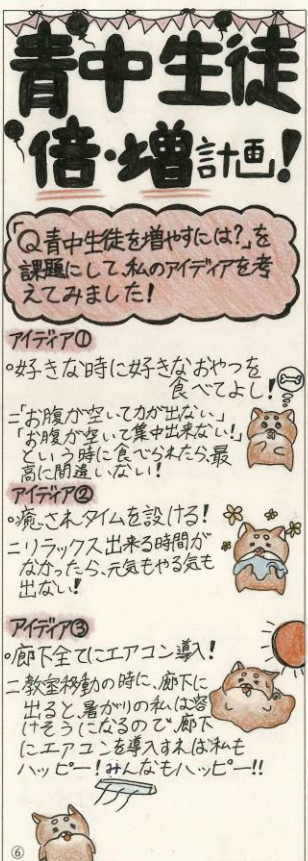 青中生徒
倍・増計画!
「Q青中生徒を増やすには?」を
課題にして、私のアイディアを考
えてみました!
アイディア①
○好きな時に好きなおやつを
食べてよし!
=「お腹が空いて力が出ない」
「お腹が空いて集中出来ない!」
という時に食べられたら、最
高に間違いない!
アイディア②
○癒されタイムを設ける!
=リラックス出来る時間が
なかったら、元気もやる気も
出ない!!
アイディア③
○廊下全てにエアコン導入!
=教室移動の時に、廊下に
出ると、暑がりの私は溶
けそうになるので、廊下
にエアコンを導入すれば私も
ハッピー!みんなもハッピー!!
⑥